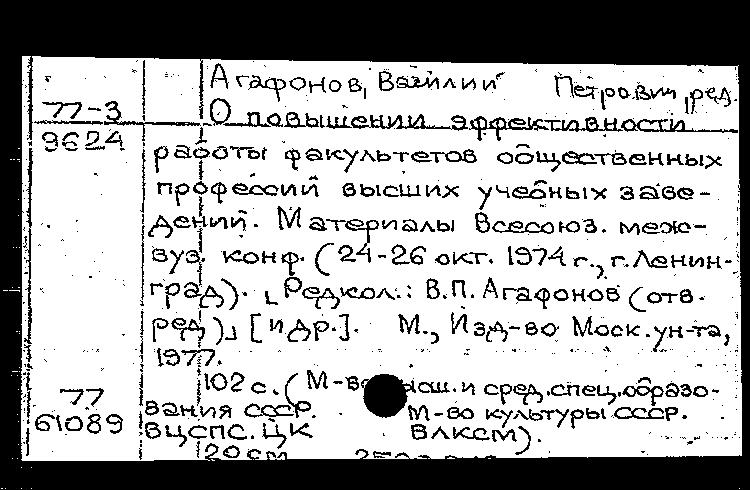 Агафонов, Василий Петрович, ред.
77-3 О повышении эффективности
9624 работы факультетов общественных
профессий высших учебных заве-
дений. Материалы Всесоюз. меж-
вуз. конф. (24-26 окт. 1974 г., г. Ленин-
град). [Редкол.: В.П. Агафонов (отв.
ред)] [и др.]. М., Изд-во Моск. ун-та,
1977.
102 с. (М-во высш. и сред. спец. образо-
77 вания СССР. М-во культуры СССР.
61089 ВЦСПС. ЦК ВЛКСМ).
20 см